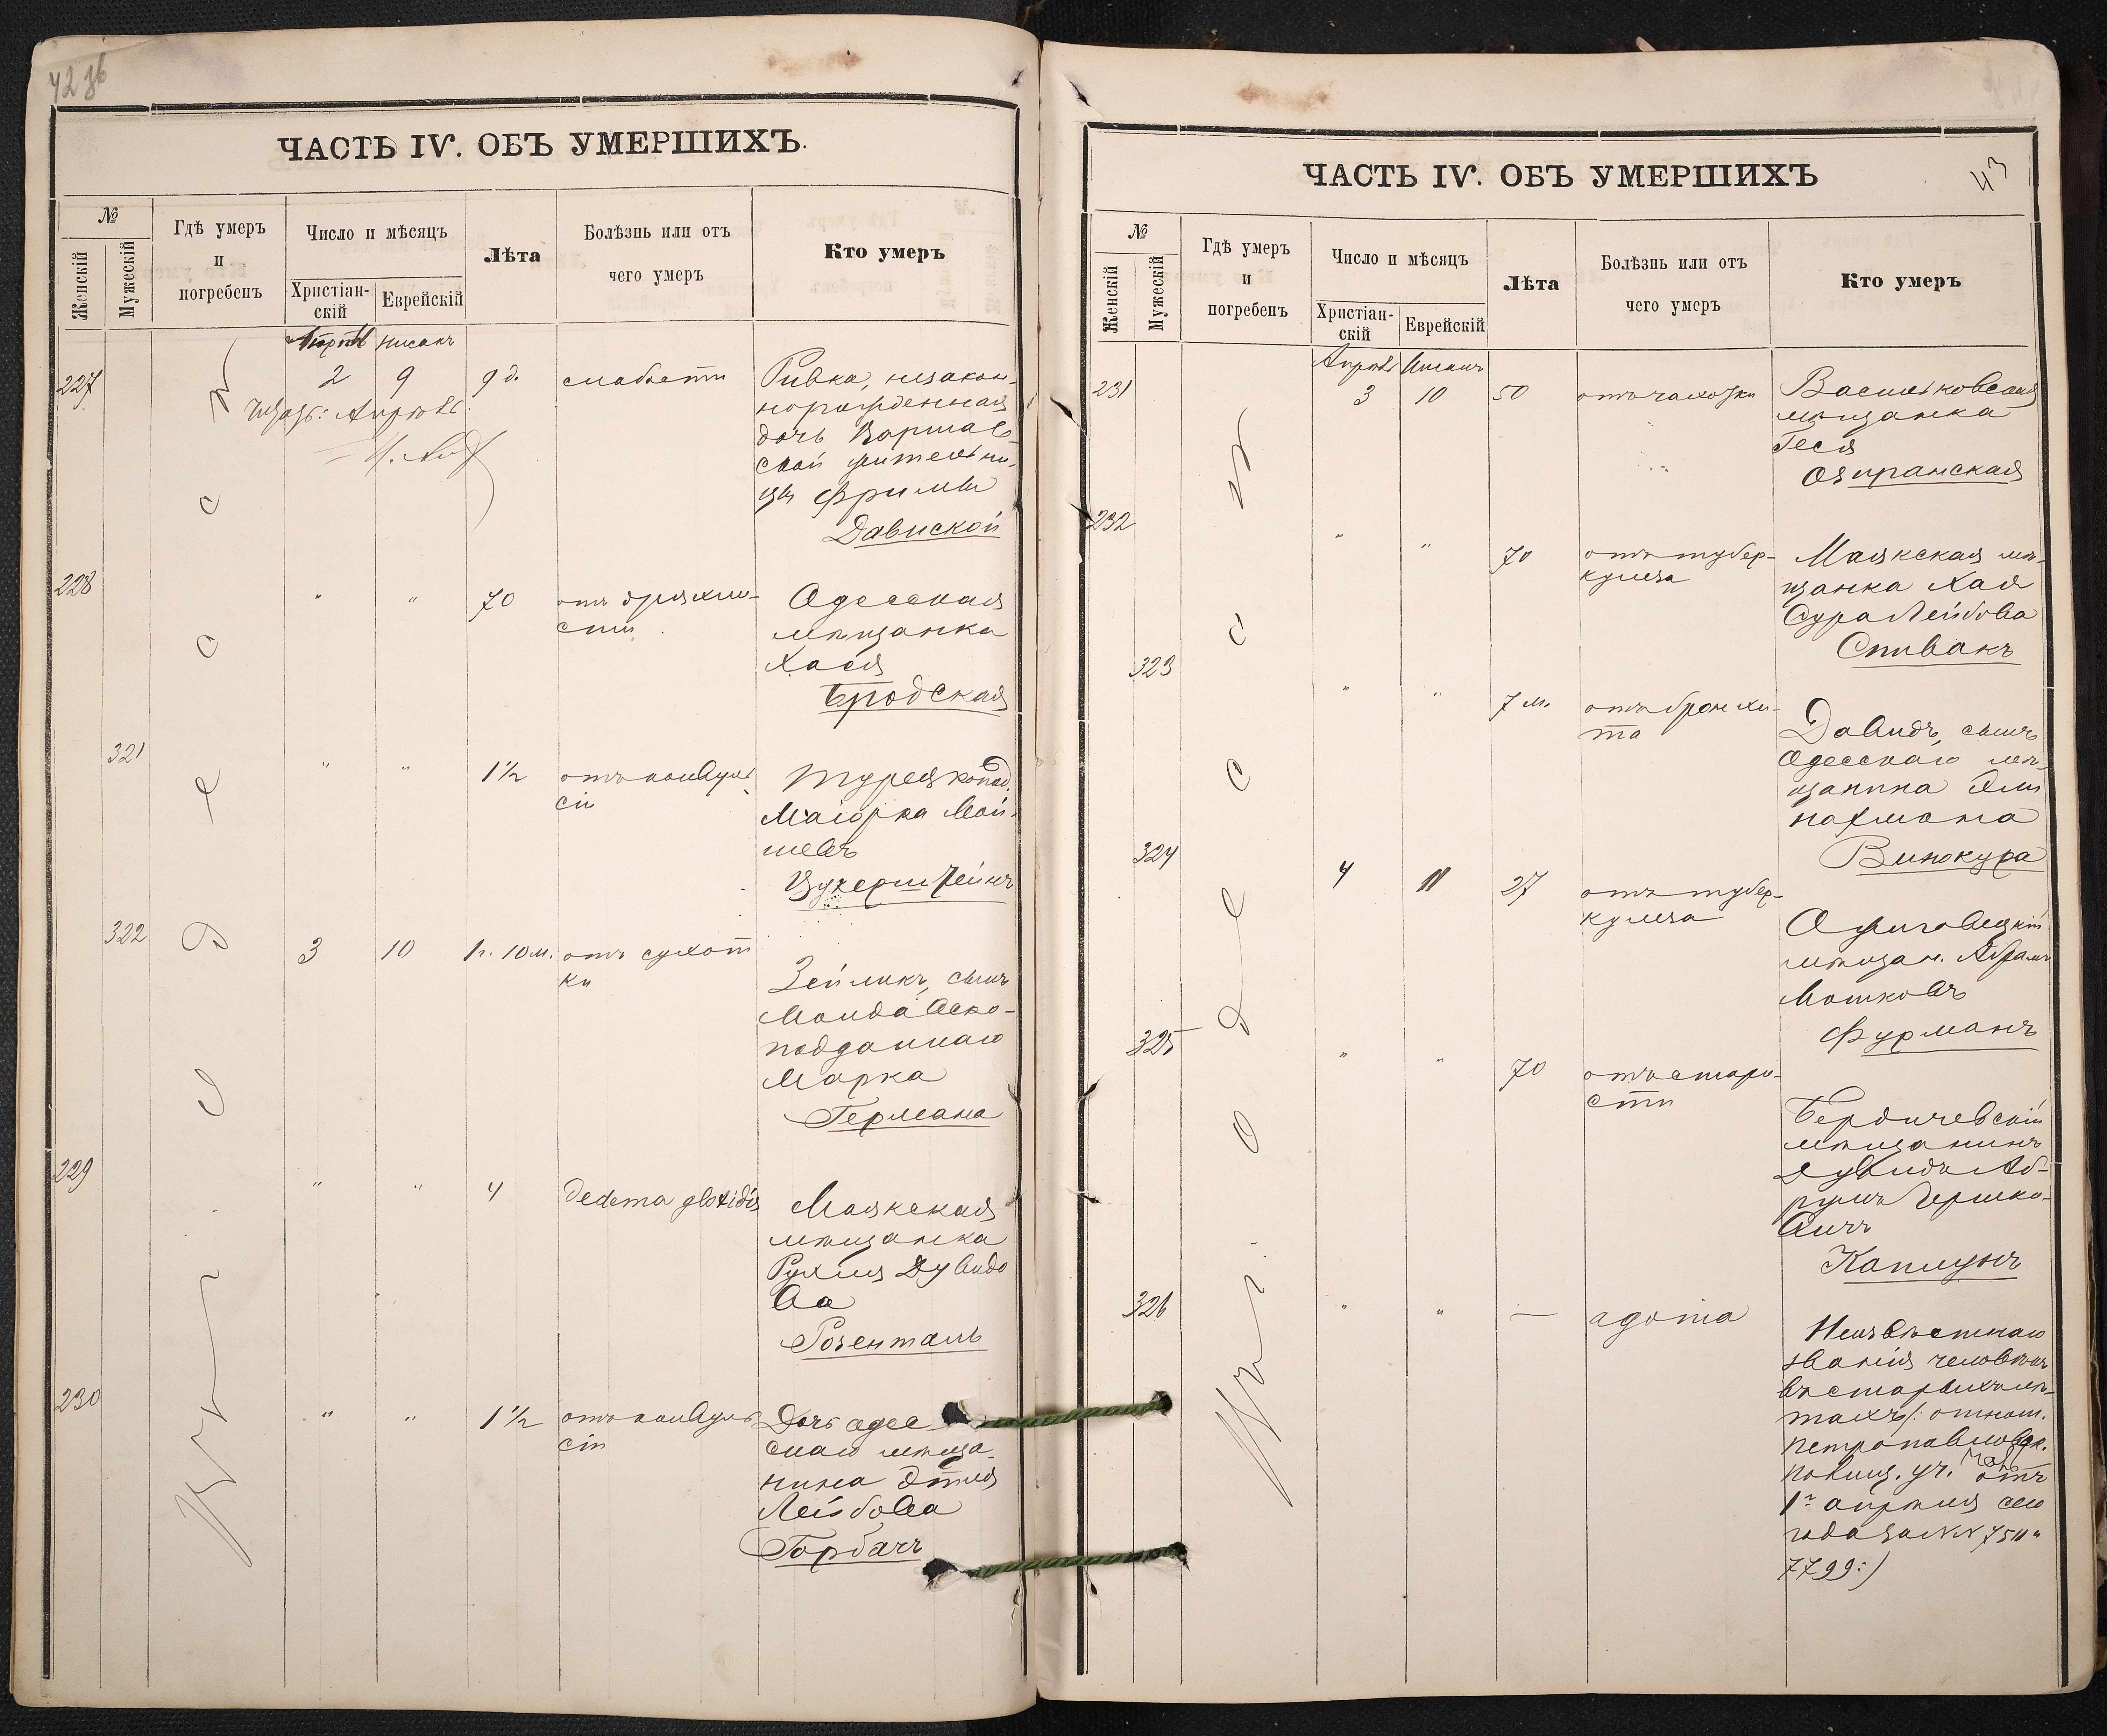 42 об
ЧАСТЬ IV. ОБЪ УМЕРШИХЪ.
№
Женскій
Мужескій
Гдѣ умеръ
и
погребенъ
Число и мѣсяцъ
Христіан-
скій
Еврейскій
Лѣта
Болѣзнь или отъ
чего умеръ
Кто умеръ
нисанъ
227
2
9
9 д.
слабости
Ривка, незакон-
норожденная
дочь Варшав-
ской жительни-
цы Фримы
Давиской
Апрѣль
228
"
"
70
отъ дряхло-
сти
Одесская
мѣщанка
Хася
Бродская
321
"
"
1½
отъ конвуль
сіи
Турецкопод.
Маіорка Мой-
шевъ
Цукерштейнъ
322
3
10
1 г. 10 м.
отъ сухот
ки
Зейликъ, сынъ
Молдавско-
подданнаго
Марка
Германа
229
"
"
4
Oedema glotidis
Маякская
мѣщанка
Рухля Дувидо
ва
Розенталь
230
"
"
1½
отъ конвуль
сіи
Дочь одес
скаго мѣща-
нина Этля
Лейбова
Горбачъ
Въ г. Одессѣ
ЧАСТЬ IV. ОБЪ УМЕРШИХЪ
43
№
Женскій
Мужескій
Гдѣ умеръ
и
погребенъ
Число и мѣсяцъ
Христіан-
скій
Еврейскій
Лѣта
Болѣзнь или отъ
чего умеръ
Кто умеръ
Апрѣль
Нисанъ
231
3
10
50
отъ чахотки
Васильковская
мѣщанка
Геся
Озиранская
232
"
"
70
отъ тубер-
кулеза
Маякская мѣ-
щанка Хая
Сура Лейбова
Спивакъ
323
"
"
7 м.
отъ бронхи-
та
Давидъ, сынъ
Одесскаго мѣ-
щанина
нахмана
Винокура
324
4
11
27
отъ тубер-
кулеза
мѣщан. Абрамъ
Мошковъ
Фурманъ
325
"
"
70
отъ старо-
сти
Бердичевскій
мѣщанинъ
Дувидъ Аб-
румъ Гершко-
вичъ
Каплунъ
326
"
"
—
agonia
Неизвѣстнаго
званія человѣкъ
въ старыхъ лѣ-
тахъ /: отнош.
петропавловск.
полиц. уч. отъ
1го апрѣля сего
года за №№
7799:/